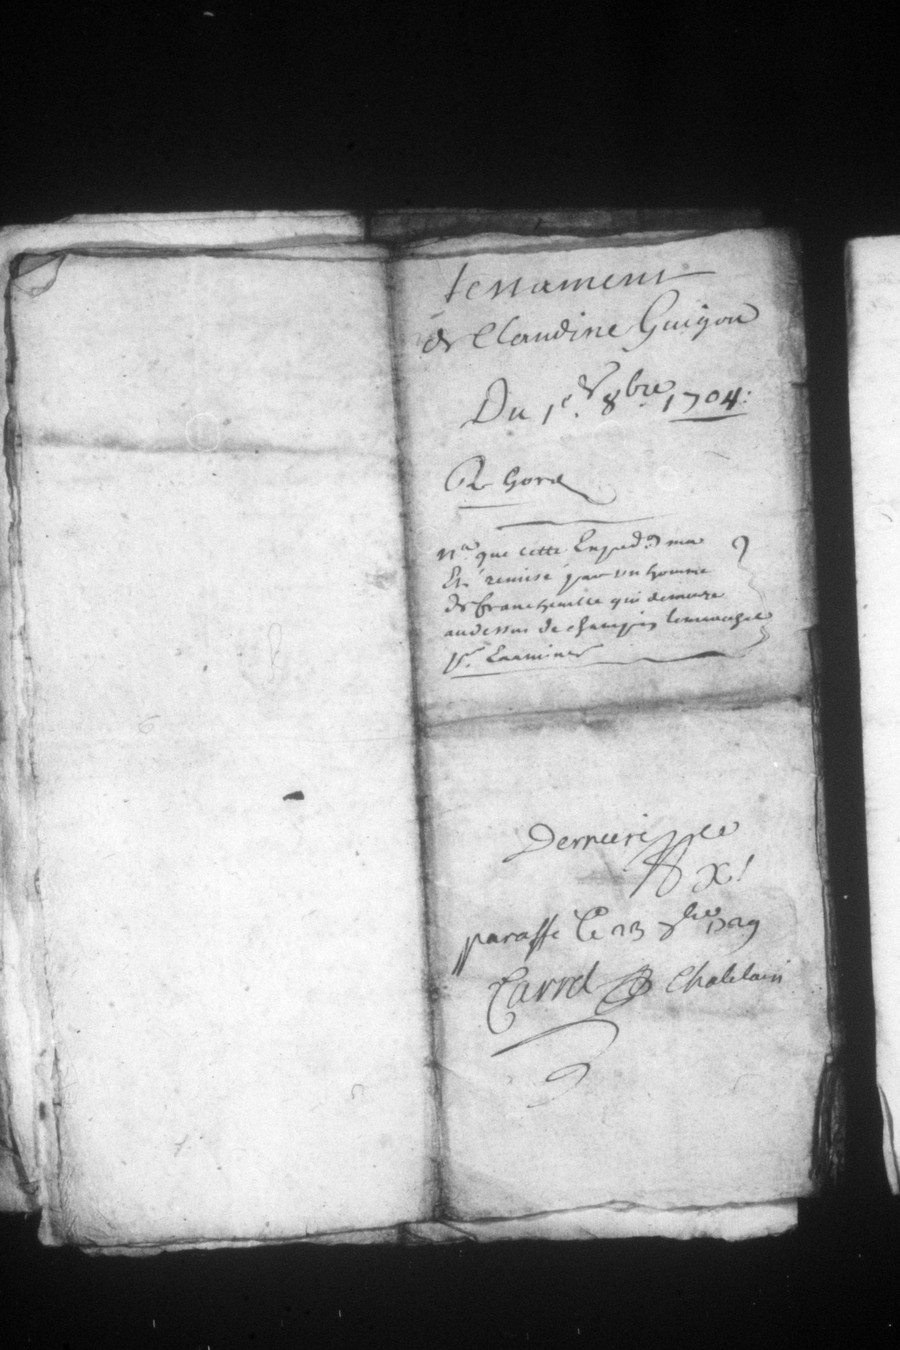 testament
de Claudine Guigou
Du 1er 8bre 1704:
Gord
Na que cette Exped.on ma
Ete remise par un homme
de franchemille qui demeure
audessus de
pr. Examiner
Derniere
paraffé Ce 23 1729
Carrel Chatelain